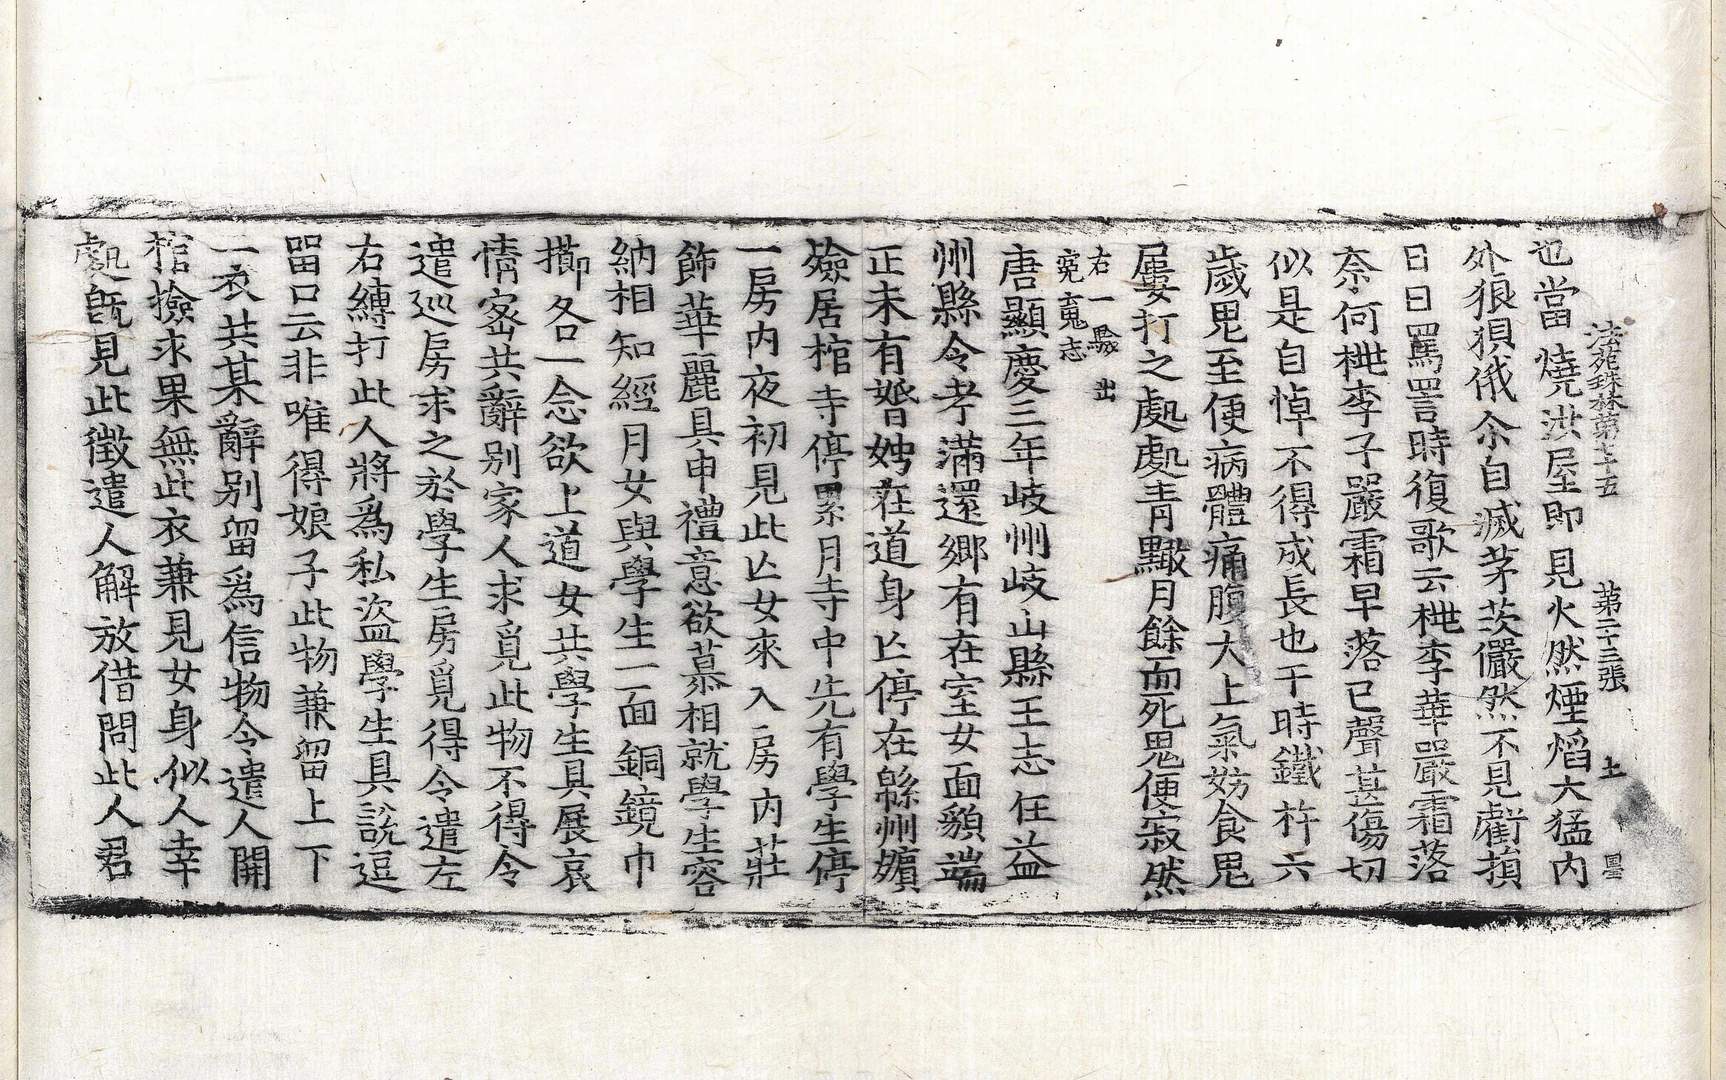 法苑珠林第七十五 第二十三張 土 墨
也當燒洪屋即見火然煙熖大猛内
外狼狽俄尒自滅茅茨儼然不見虧損
日日罵詈時復歌云桃李華嚴霜落
奈何桃李子嚴霜早落已聲甚傷切
似是自悼不得成長也于時鐵杵六
歲鬼至便病體痛腹大上氣妨食鬼
屢打之處處青黶月餘而死鬼便寂然
右一驗出
冤䰟志
唐顯慶三年岐州岐山縣王志任益
州縣令考滿還鄉有在室女面貌端
正未有婚娉在道身亡停在緜州殯
殮居棺寺停累月寺中先有學生停
一房内夜初見此亡女來入房内莊
飾華麗具申禮意欲慕相就學生容
納相知經月女與學生一面銅鏡巾
櫛各一念欲上道女共學生具展哀
情密共辭別家人求覓此物不得令
遣巡房求之於學生房覓得令遣左
右縛打此人將爲私盜學生具說逗
留口云非唯得娘子此物兼留上下
一衣共某辭別留爲信物令遣人開
棺撿求果無此衣兼見女身似人幸
處旣見此徵遣人解放借問此人君